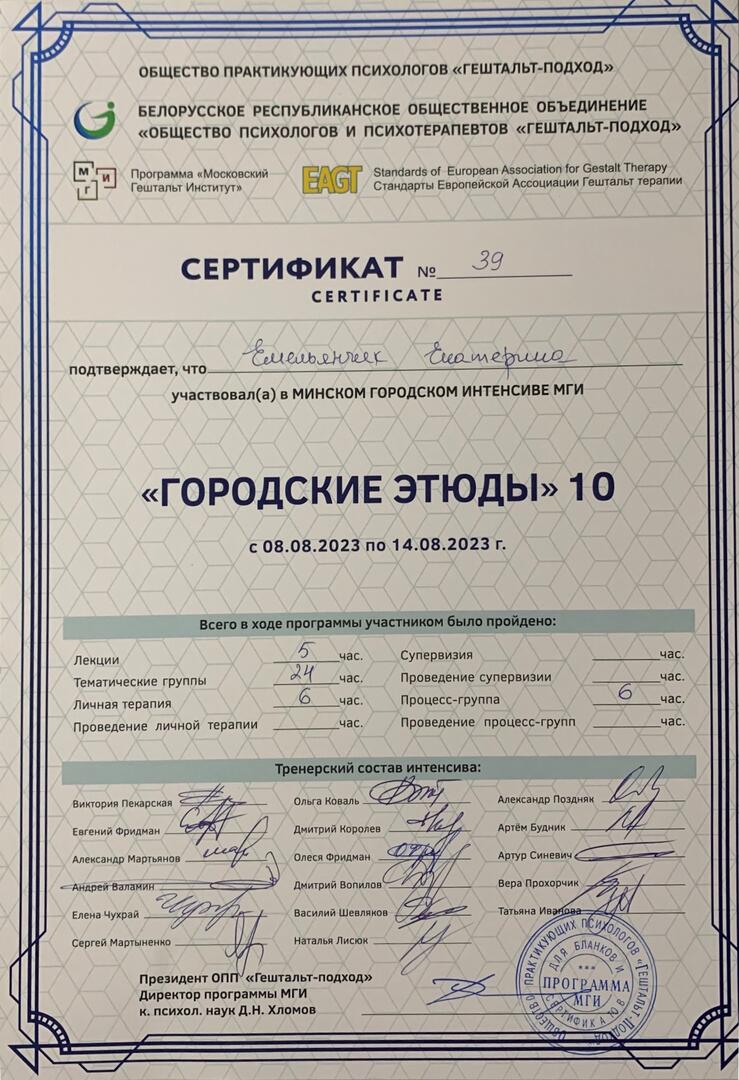 ОБЩЕСТВО ПРАКТИКУЮЩИХ ПСИХОЛОГОВ «ГЕШТАЛЬТ-ПОДХОД»
БЕЛОРУССКОЕ РЕСПУБЛИКАНСКОЕ ОБЩЕСТВЕННОЕ ОБЪЕДИНЕНИЕ
«ОБЩЕСТВО ПСИХОЛОГОВ И ПСИХОТЕРАПЕВТОВ «ГЕШТАЛЬТ-ПОДХОД»
М И Г
Программа «Московский
Гештальт Институт»
EAGT
Standards of European Association for Gestalt Therapy
Стандарты Европейской Ассоциации Гештальт терапии
СЕРТИФИКАТ № 39
CERTIFICATE
подтверждает, что Емельянчик Екатерина
участвовал(а) в МИНСКОМ ГОРОДСКОМ ИНТЕНСИВЕ МГИ
«ГОРОДСКИЕ ЭТЮДЫ» 10
с 08.08.2023 по 14.08.2023 г.
Всего в ходе программы участником было пройдено:
Лекции 5 час.
Тематические группы 24 час.
Личная терапия 6 час.
Проведение личной терапии час.
Супервизия час.
Проведение супервизии час.
Процесс-группа 6 час.
Проведение процесс-групп час.
Тренерский состав интенсива:
Виктория Пекарская
Евгений Фридман
Александр Мартьянов
Андрей Валамин
Елена Чухрай
Сергей Мартыненко
Ольга Коваль
Дмитрий Королев
Олеся Фридман
Дмитрий Вопилов
Василий Шевляков
Наталья Лисюк
Александр Поздняк
Артём Будник
Артур Синевич
Вера Прохорчик
Татьяна Иванова
Президент ОПП «Гештальт-подход»
Директор программы МГИ
к. психол. наук Д.Н. Хломов
ОБЩЕСТВО ПРАКТИКУЮЩИХ ПСИХОЛОГОВ «ГЕШТАЛЬТ-ПОДХОД»
ДЛЯ БЛАНКОВ И СЕРТИФИКАТОВ
ПРОГРАММА
МГИ